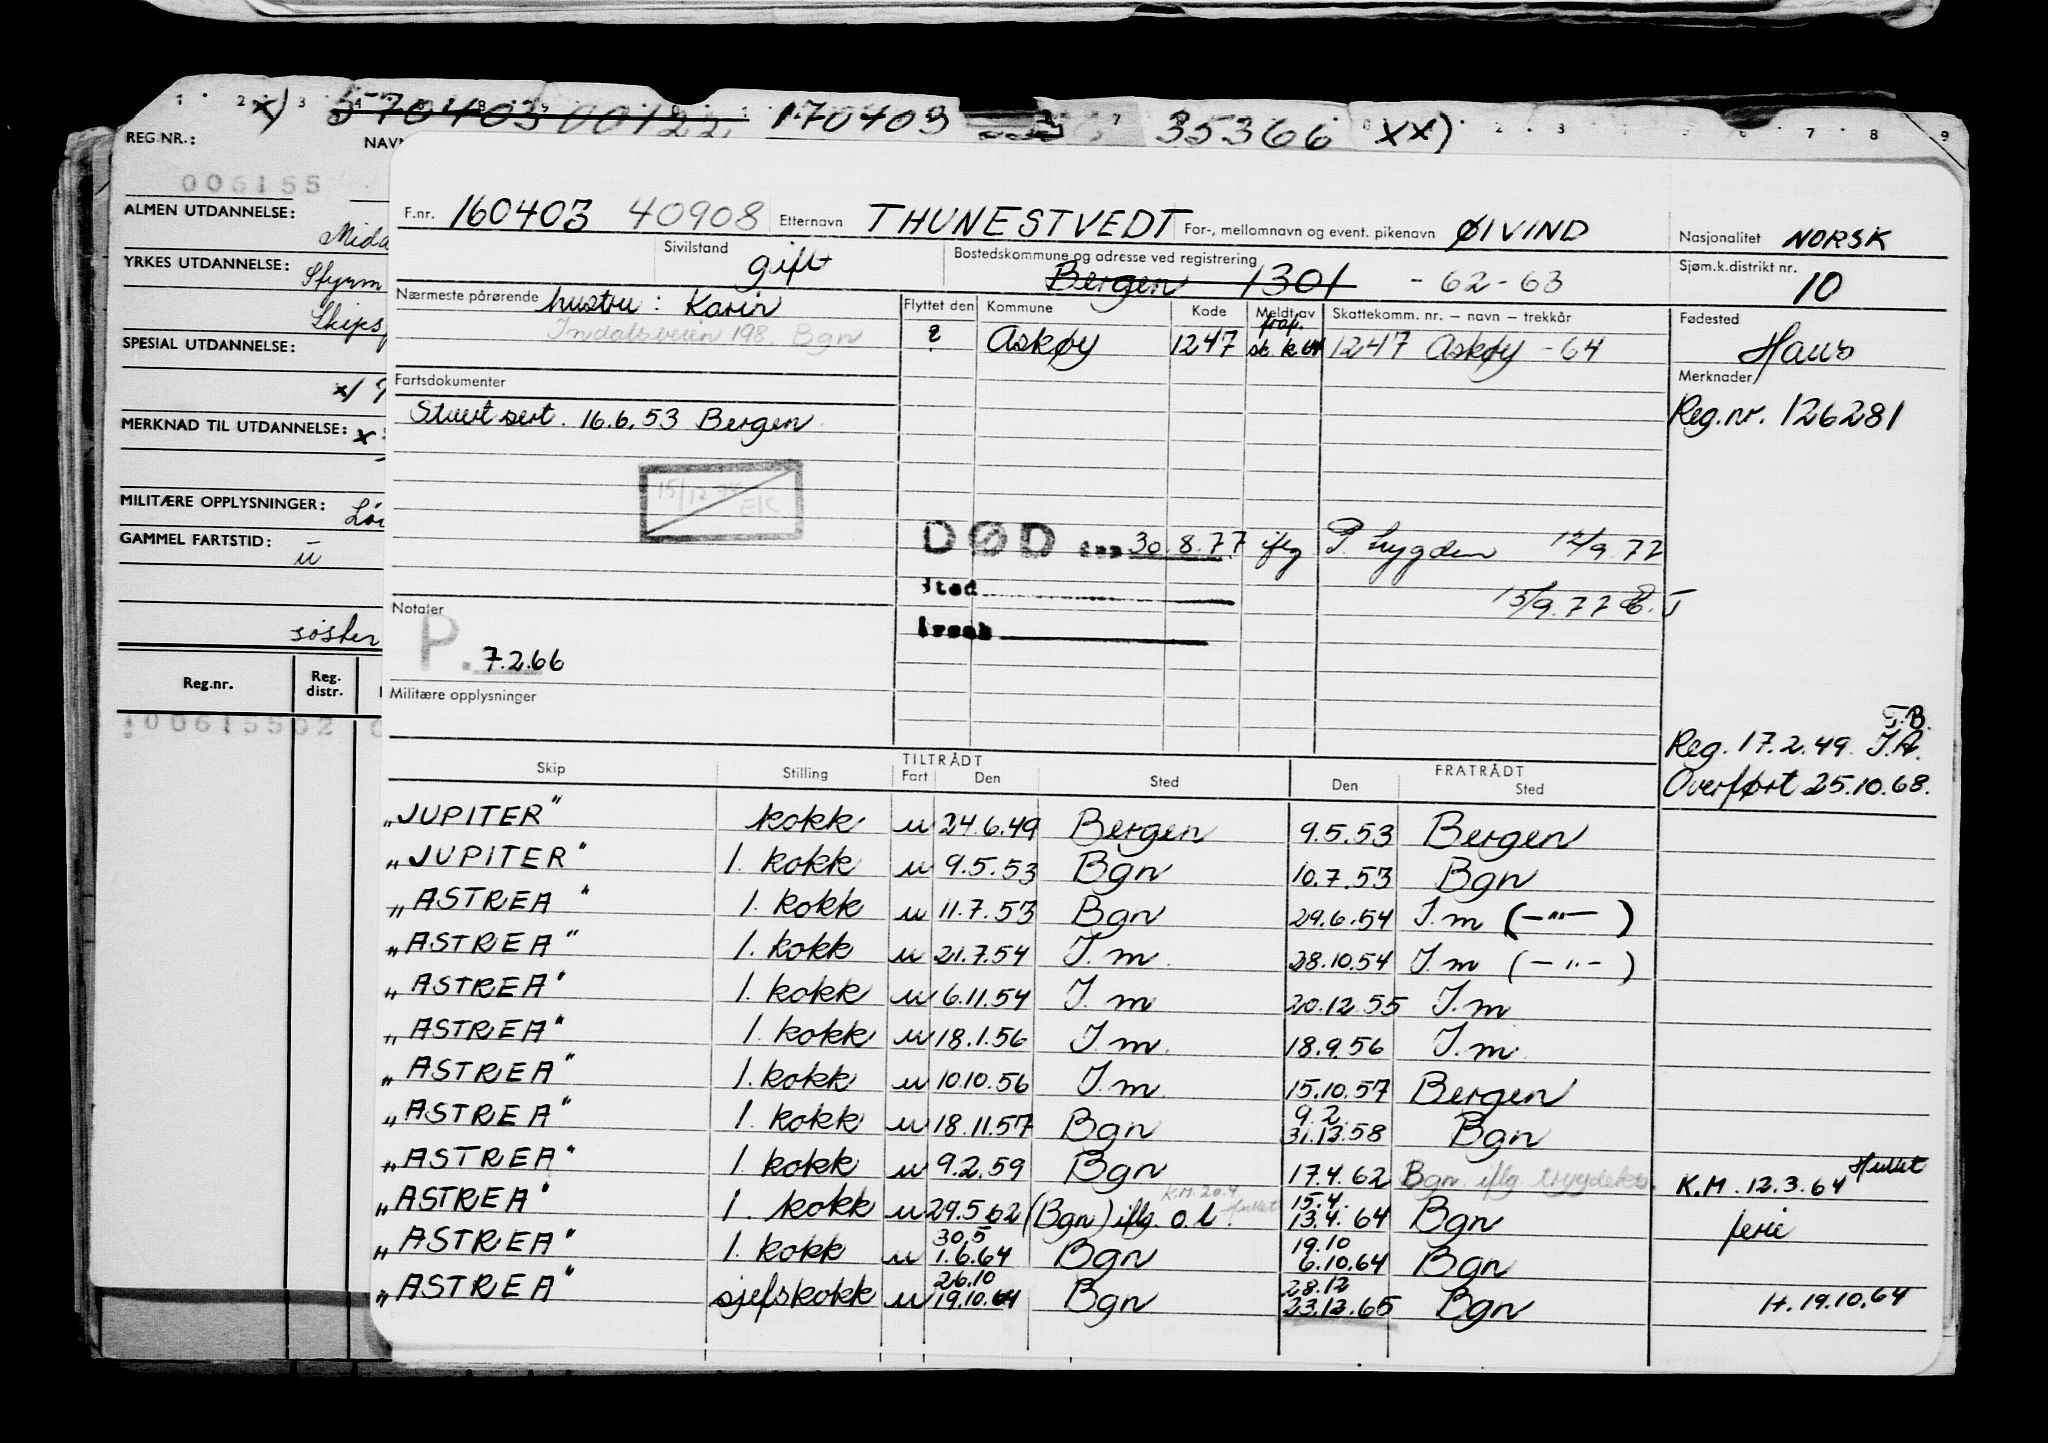 x) 570403 00122 170403 35366 xx)
REG.NR.:
006155
ALMEN UTDANNELSE:
YRKES UTDANNELSE:
SPESIAL UTDANNELSE:
MERKNAD TIL UTDANNELSE: x
MILITÆRE OPPLYSNINGER:
GAMMEL FARTSTID: u
søster
Reg.nr. Reg. distr.
100615502
F.nr. 160403 40908 Etternavn THUNESTVEDT For-, mellomnavn og event. pikenavn ØIVIND Nasjonalitet NORSK
Sivilstand gift Bostedskommune og adresse ved registrering Bergen 1301 - 62-63 Sjøm.k.distrikt nr. 10
Nærmeste pårørende hustru: Karin
Indalsveien 198 Bgn
Flyttet den Kommune Kode Meldt av Skattekomm. nr. – navn – trekkår Fødested
? Askøy 1247 1247 Askøy - 64 Haus
Fartsdokumenter Merknader
Stuert sert. 16.6.53 Bergen Reg.nr. 126281
15/12 EK
DØD den 30.8.77 iflg P. trygden 12/9.77
sted 15/9.77
årsak
Notater
P. 7.2.66
Militære opplysninger
T.B.
Reg. 17.2.49. I.A.
Overført 25.10.68.
TILTRÅDT FRATRÅDT
Skip Stilling Fart Den Sted Den Sted
„JUPITER" kokk u 24.6.49 Bergen 9.5.53 Bergen
„JUPITER" 1. kokk u 9.5.53 Bgn 10.7.53 Bgn
„ASTREA" 1. kokk u 11.7.53 Bgn 29.6.54 I.m (—"—)
„ASTREA" 1. kokk u 21.7.54 I.m. 28.10.54 I.m (—"—)
„ASTREA" 1. kokk u 6.11.54 I.m 20.12.55 I.m
„ASTREA" 1. kokk u 18.1.56 I.m. 18.9.56 I.m.
„ASTREA" 1. kokk u 10.10.56 I.m 15.10.57 Bergen
„ASTREA" 1. kokk u 18.11.57 Bgn 9.2. 31.12.58 Bgn
„ASTREA" 1. kokk u 9.2.59 Bgn 17.4.62 Bgn iflg trygdekt. K.M. 12.3.64 Hullet
„ASTREA" 1. kokk u 29.5.62 (Bgn) iflg. o.l K.M. 20.4 hullet 15.4. 13.4.64 Bgn ferie
„ASTREA" 1. kokk u 30.5 1.6.64 Bgn 19.10 6.10.64 Bgn
„ASTREA" sjefskokk u 26.10 19.10.64 Bgn 28.12 23.12.65 Bgn H. 19.10.64